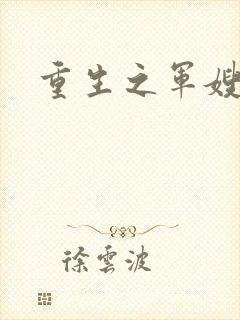 重生之军嫂
徐雲波